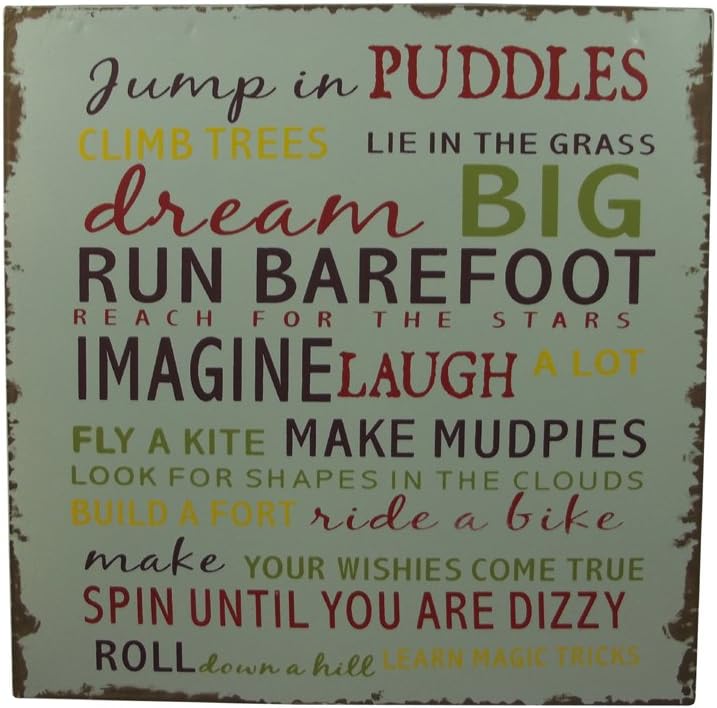 Jump in PUDDLES
CLIMB TREES LIE IN THE GRASS
dream BIG
RUN BAREFOOT
REACH FOR THE STARS
IMAGINE LAUGH A LOT
FLY A KITE MAKE MUDPIES
LOOK FOR SHAPES IN THE CLOUDS
BUILD A FORT ride a bike
make YOUR WISHIES COME TRUE
SPIN UNTIL YOU ARE DIZZY
ROLL down a hill LEARN MAGIC TRICKS